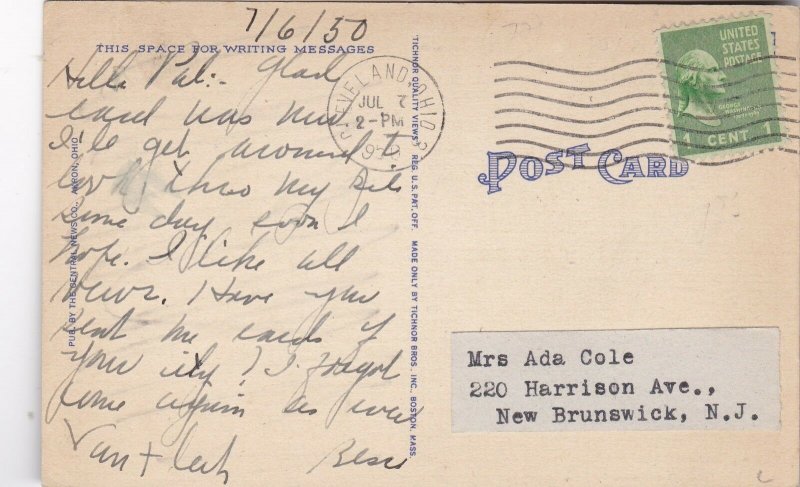 7/6/50
THIS SPACE FOR WRITING MESSAGES
Hello Pal:- Glad
card was new
I'll get around to
look thro my file
some day soon I
hope. I like all
views. Have you
sent me cards of
your city? I forgot
come again as ever
Bess
CLEVELAND, OHIO
JUL 7
2-PM
PUB. BY THE CENTRAL NEWS CO., AKRON, OHIO
"TICHNOR QUALITY VIEWS" REG. U. S. PAT. OFF. MADE ONLY BY TICHNOR BROS. INC., BOSTON, MASS.
UNITED
STATES
POSTAGE
GEORGE WASHINGTON
1 CENT 1
POST CARD
Mrs Ada Cole
220 Harrison Ave.,
New Brunswick, N.J.